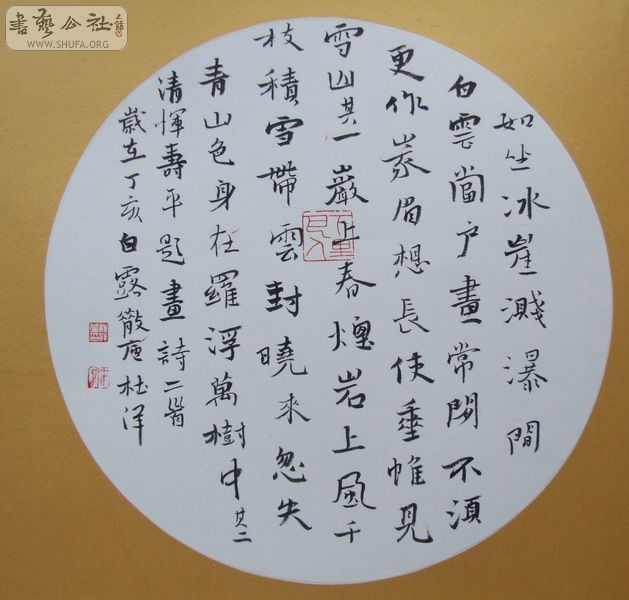 書藝公社
WWW.SHUFA.ORG
如坐冰崖濺瀑間
白雲當户晝常閑不須
更作峩眉想長使垂帷見
雪山其一巖上春煙岩上風千
枝積雪帶雲封曉来忽失
青山色身在羅浮萬樹中其二
清惲壽平題畫詩二首
歲在丁亥白露散庵杜洋